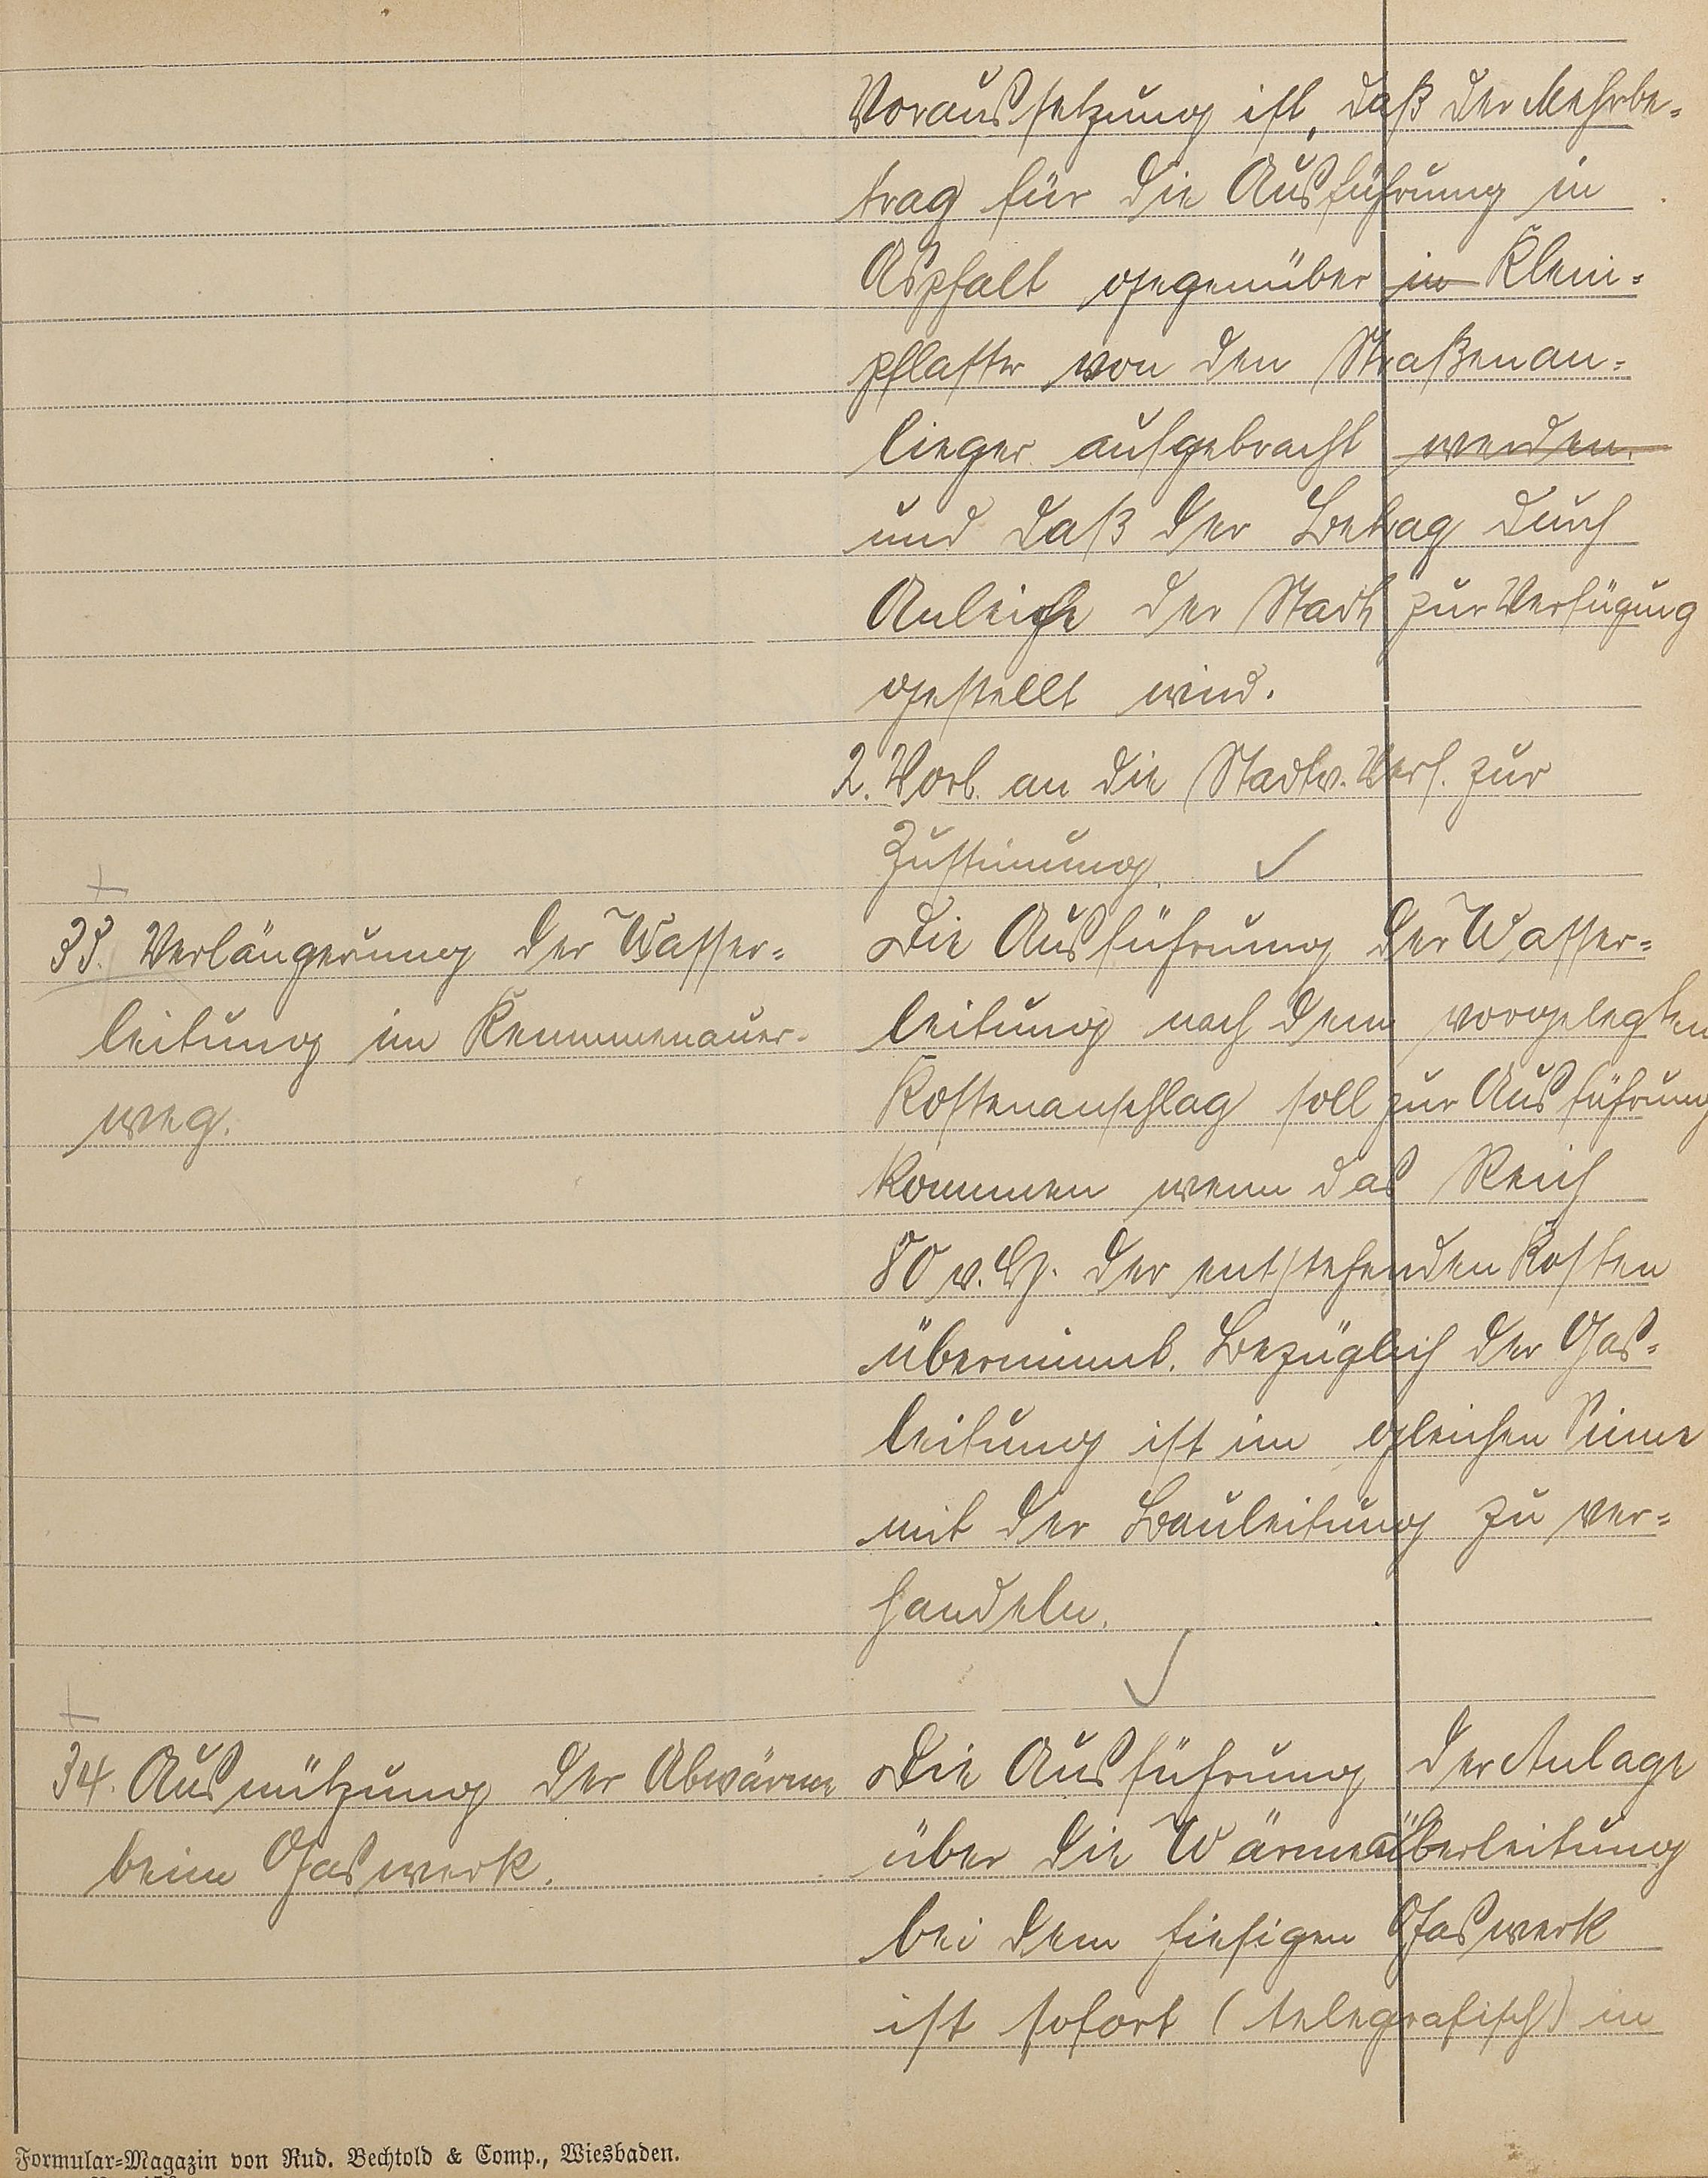 Voraussetzung ist, daß der Mehrbe-
trag für die Ausführung in
Asphalt gegenüber in Klein-
pflaster von den Straßenan-
lieger aufgebracht werden.
und daß der Betrag durch
Anleihe der Stadt zur Verfügung
gestellt wird.
2. Vorl. an die Stadtv. Vers. zur
Zustimmung.
33. Verlängerung der Wasser-
leitung im Kemmenauer-
weg.
Die Ausführung der Wasser-
leitung nach dem vorgelegten
Kostenanschlag soll zur Ausführung
kommen wenn das Reich
80 v. H. der entstehenden Kosten
übernimmt. Bezüglich der Gas-
leitung ist im gleichen Sinne
mit der Bauleitung zu ver-
handeln.
34. Ausnützung der Abwärme
beim Gaswerk.
Die Ausführung der Anlage
über die Wärmeüberleitung
bei dem hiesigen Gaswerk
ist sofort (telegrafisch) in
Formular-Magazin von Rud. Bechtold & Comp., Wiesbaden.